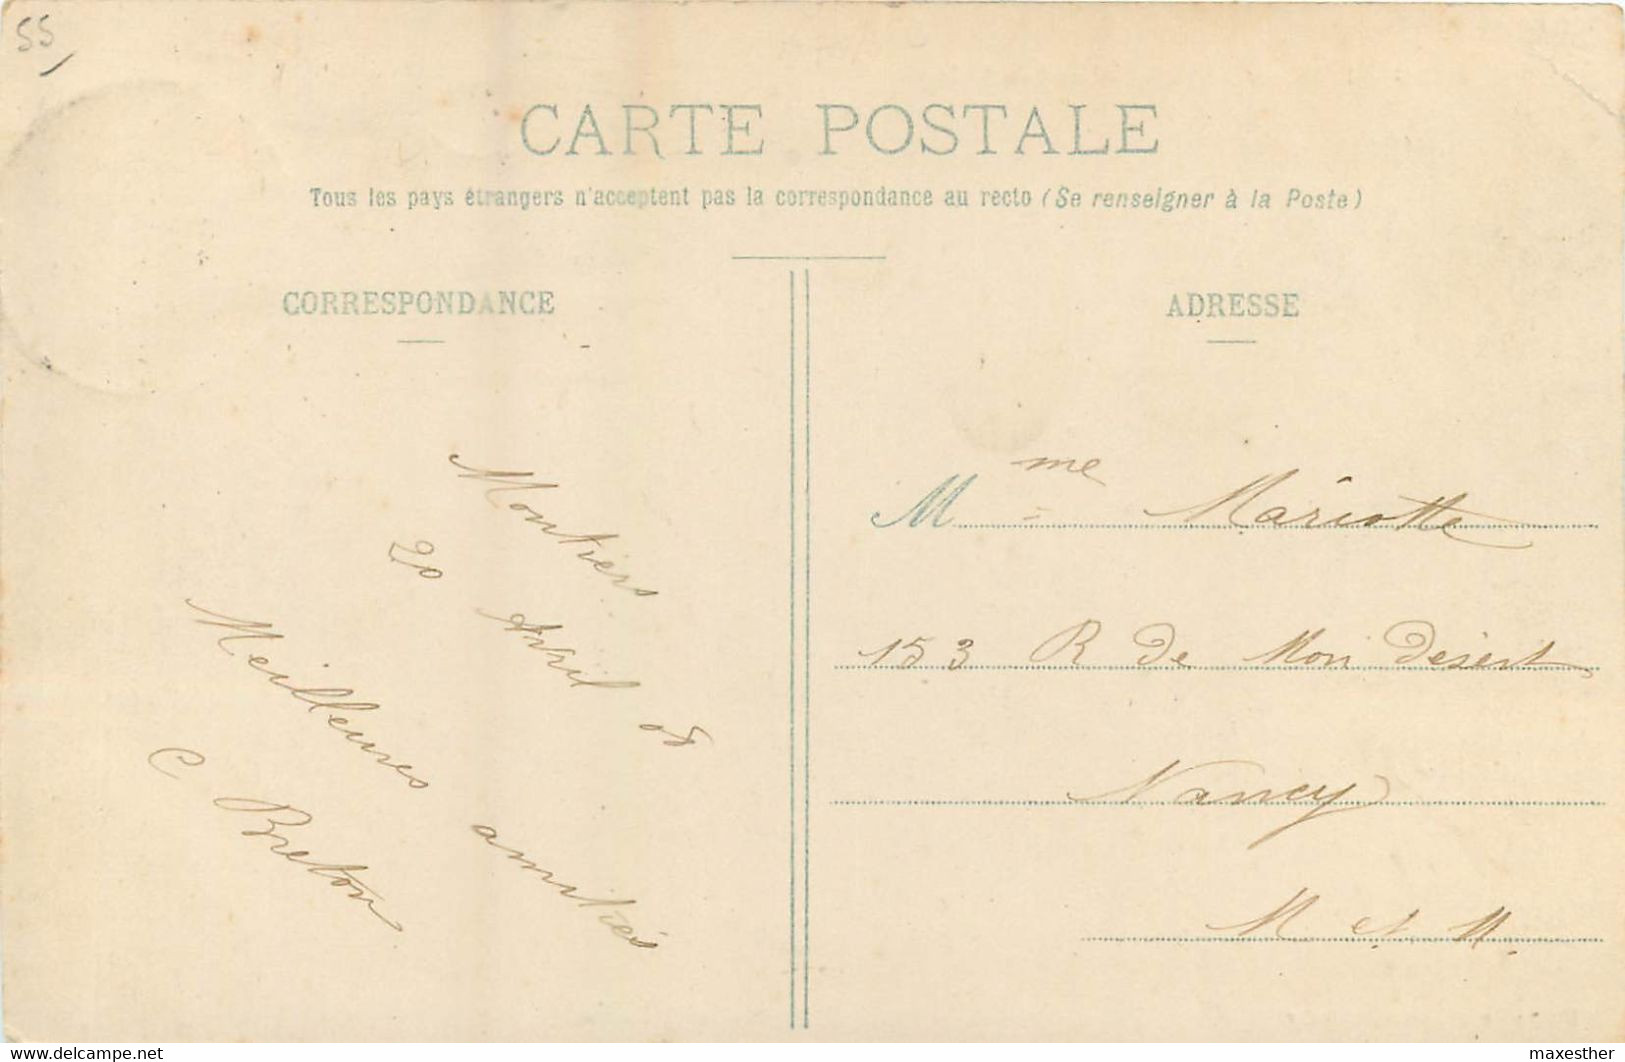 55
CARTE POSTALE
Tous les pays étrangers n'acceptent pas la correspondance au recto (Se renseigner à la Poste)
CORRESPONDANCE
Montiers
20 Avril 08
Meilleures amitiés
C Breton
ADRESSE
Mme Mariotte
153 R de Mon Désert
Nancy
M et M.
www.delcampe.net
maxesther